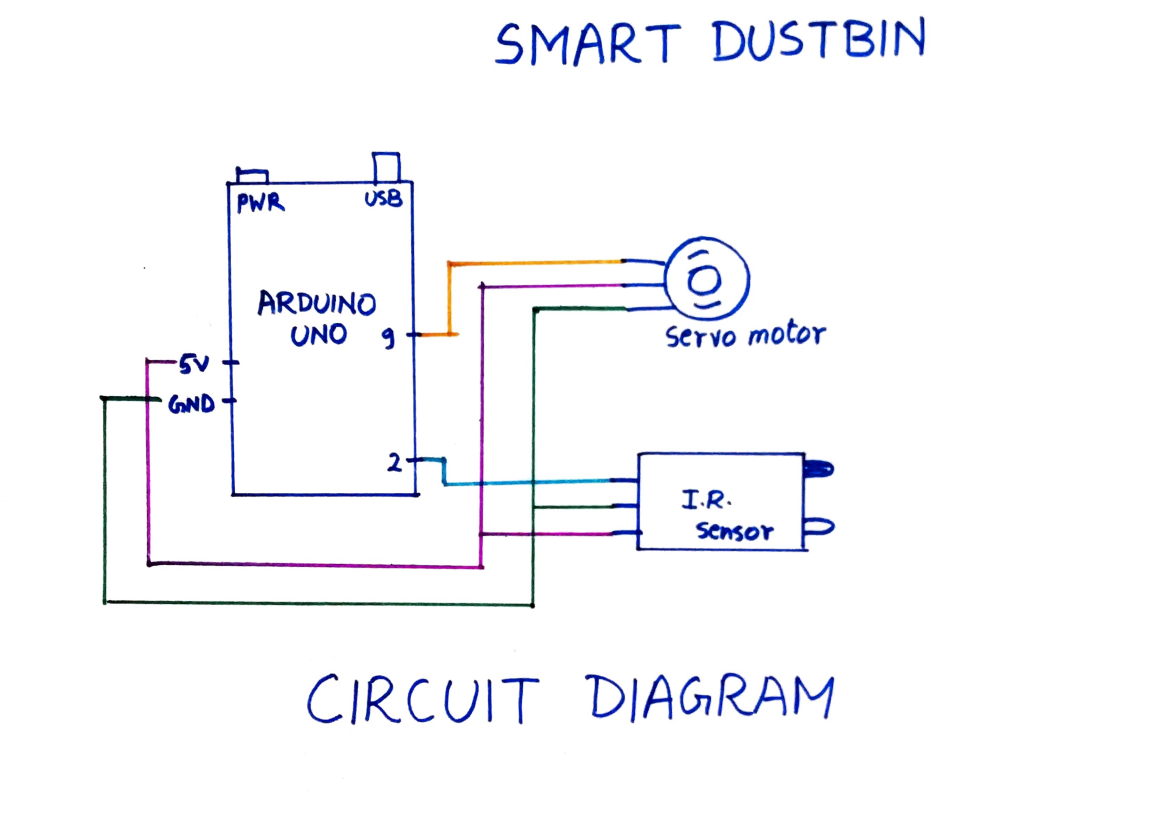 SMART DUSTBIN
PWR
USB
ARDUINO
UNO
9
5V
GND
2
servo motor
I.R.
sensor
CIRCUIT DIAGRAM